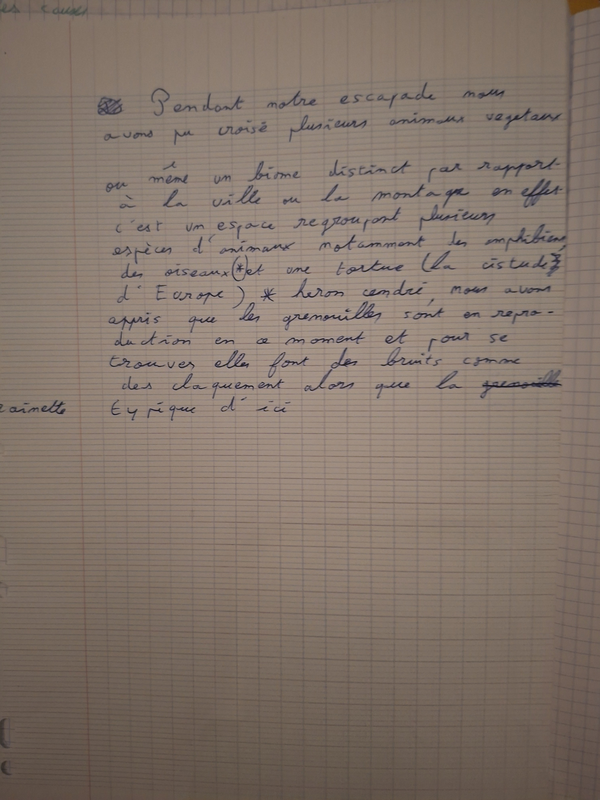 Pendant notre escapade nous
avons pu croisé plusieurs animaux vegetaux
ou même un biome distinct par rapport
à la ville ou la montage en effet
c'est un espace regroupant plusieurs
espèces d'animaux notamment des amphibiens,
des oiseaux (*) et une tortue (la cistude
d'Europe) * heron cendré, nous avons
appris que les grenouilles sont en repro-
duction en ce moment et pour se
trouver elles font des bruits comme
des claquement alors que la grenouille
rainette typique d'ici